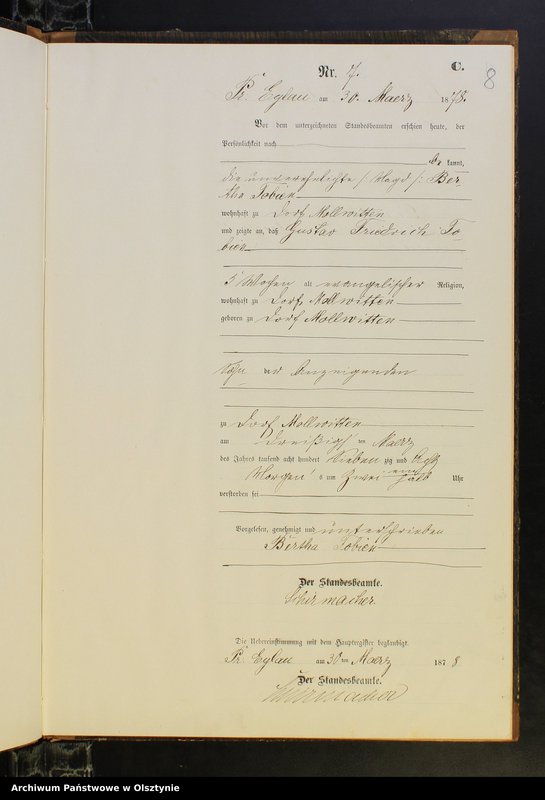 8
C.
Nr. 7.
Pr. Eylau am 30. Maerz 1878.
Vor dem unterzeichneten Standesbeamten erschien heute, der
Persönlichkeit nach
be kannt,
die unverehelichte /: Magd :/ Ber-
tha Tobien
wohnhaft zu Dorf Mollwitten
und zeigte an, daß Gustav Friedrich To-
bien
5 Wochen alt evangelischer Religion,
wohnhaft zu Dorf Mollwitten
geboren zu Dorf Mollwitten
Sohn der Anzeigenden
zu Dorf Mollwitten
am dreißigsten Maerz
des Jahres tausend acht hundert sieben zig und acht
Morgens um zwei ein halb Uhr
verstorben sei
Vorgelesen, genehmigt und unterschrieben
Bertha Tobien
Der Standesbeamte.
Schirmacher.
Die Uebereinstimmung mit dem Hauptregister beglaubigt.
Pr. Eylau am 30 ten Maerz 1878
Der Standesbeamte.
Schirmacher
Archiwum Państwowe w Olsztynie